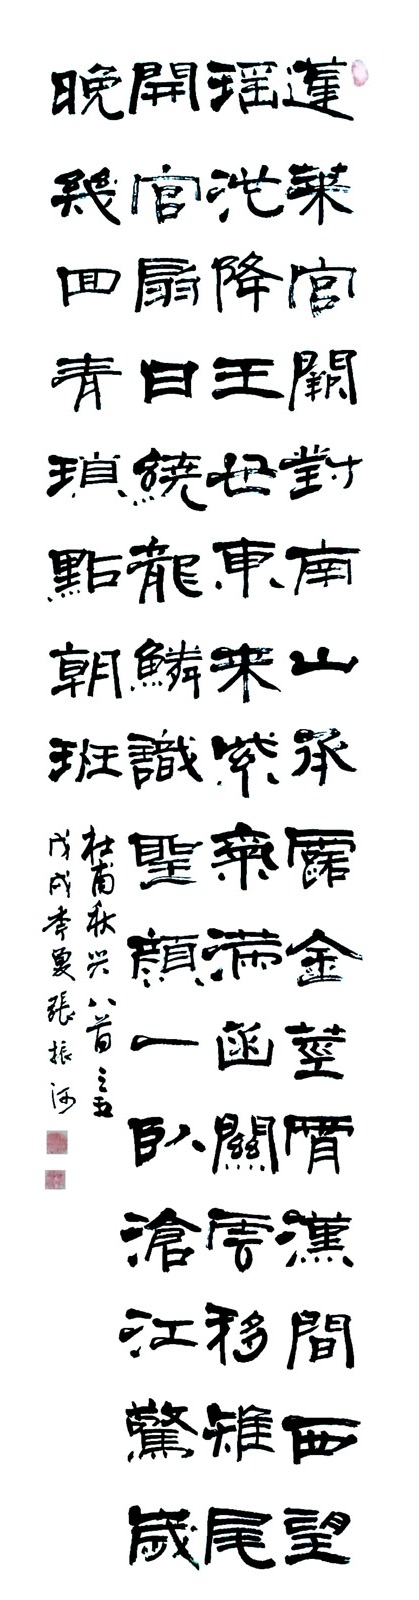 蓬萊宮闕對南山承露金莖霄漢間西望
瑶池降王母東来紫氣滿函關雲移雉尾
開宫扇日繞龍鱗識聖顔一臥滄江驚歲
晚幾回青瑣點朝班
杜甫秋兴八首之五
戊戌季夏張振河